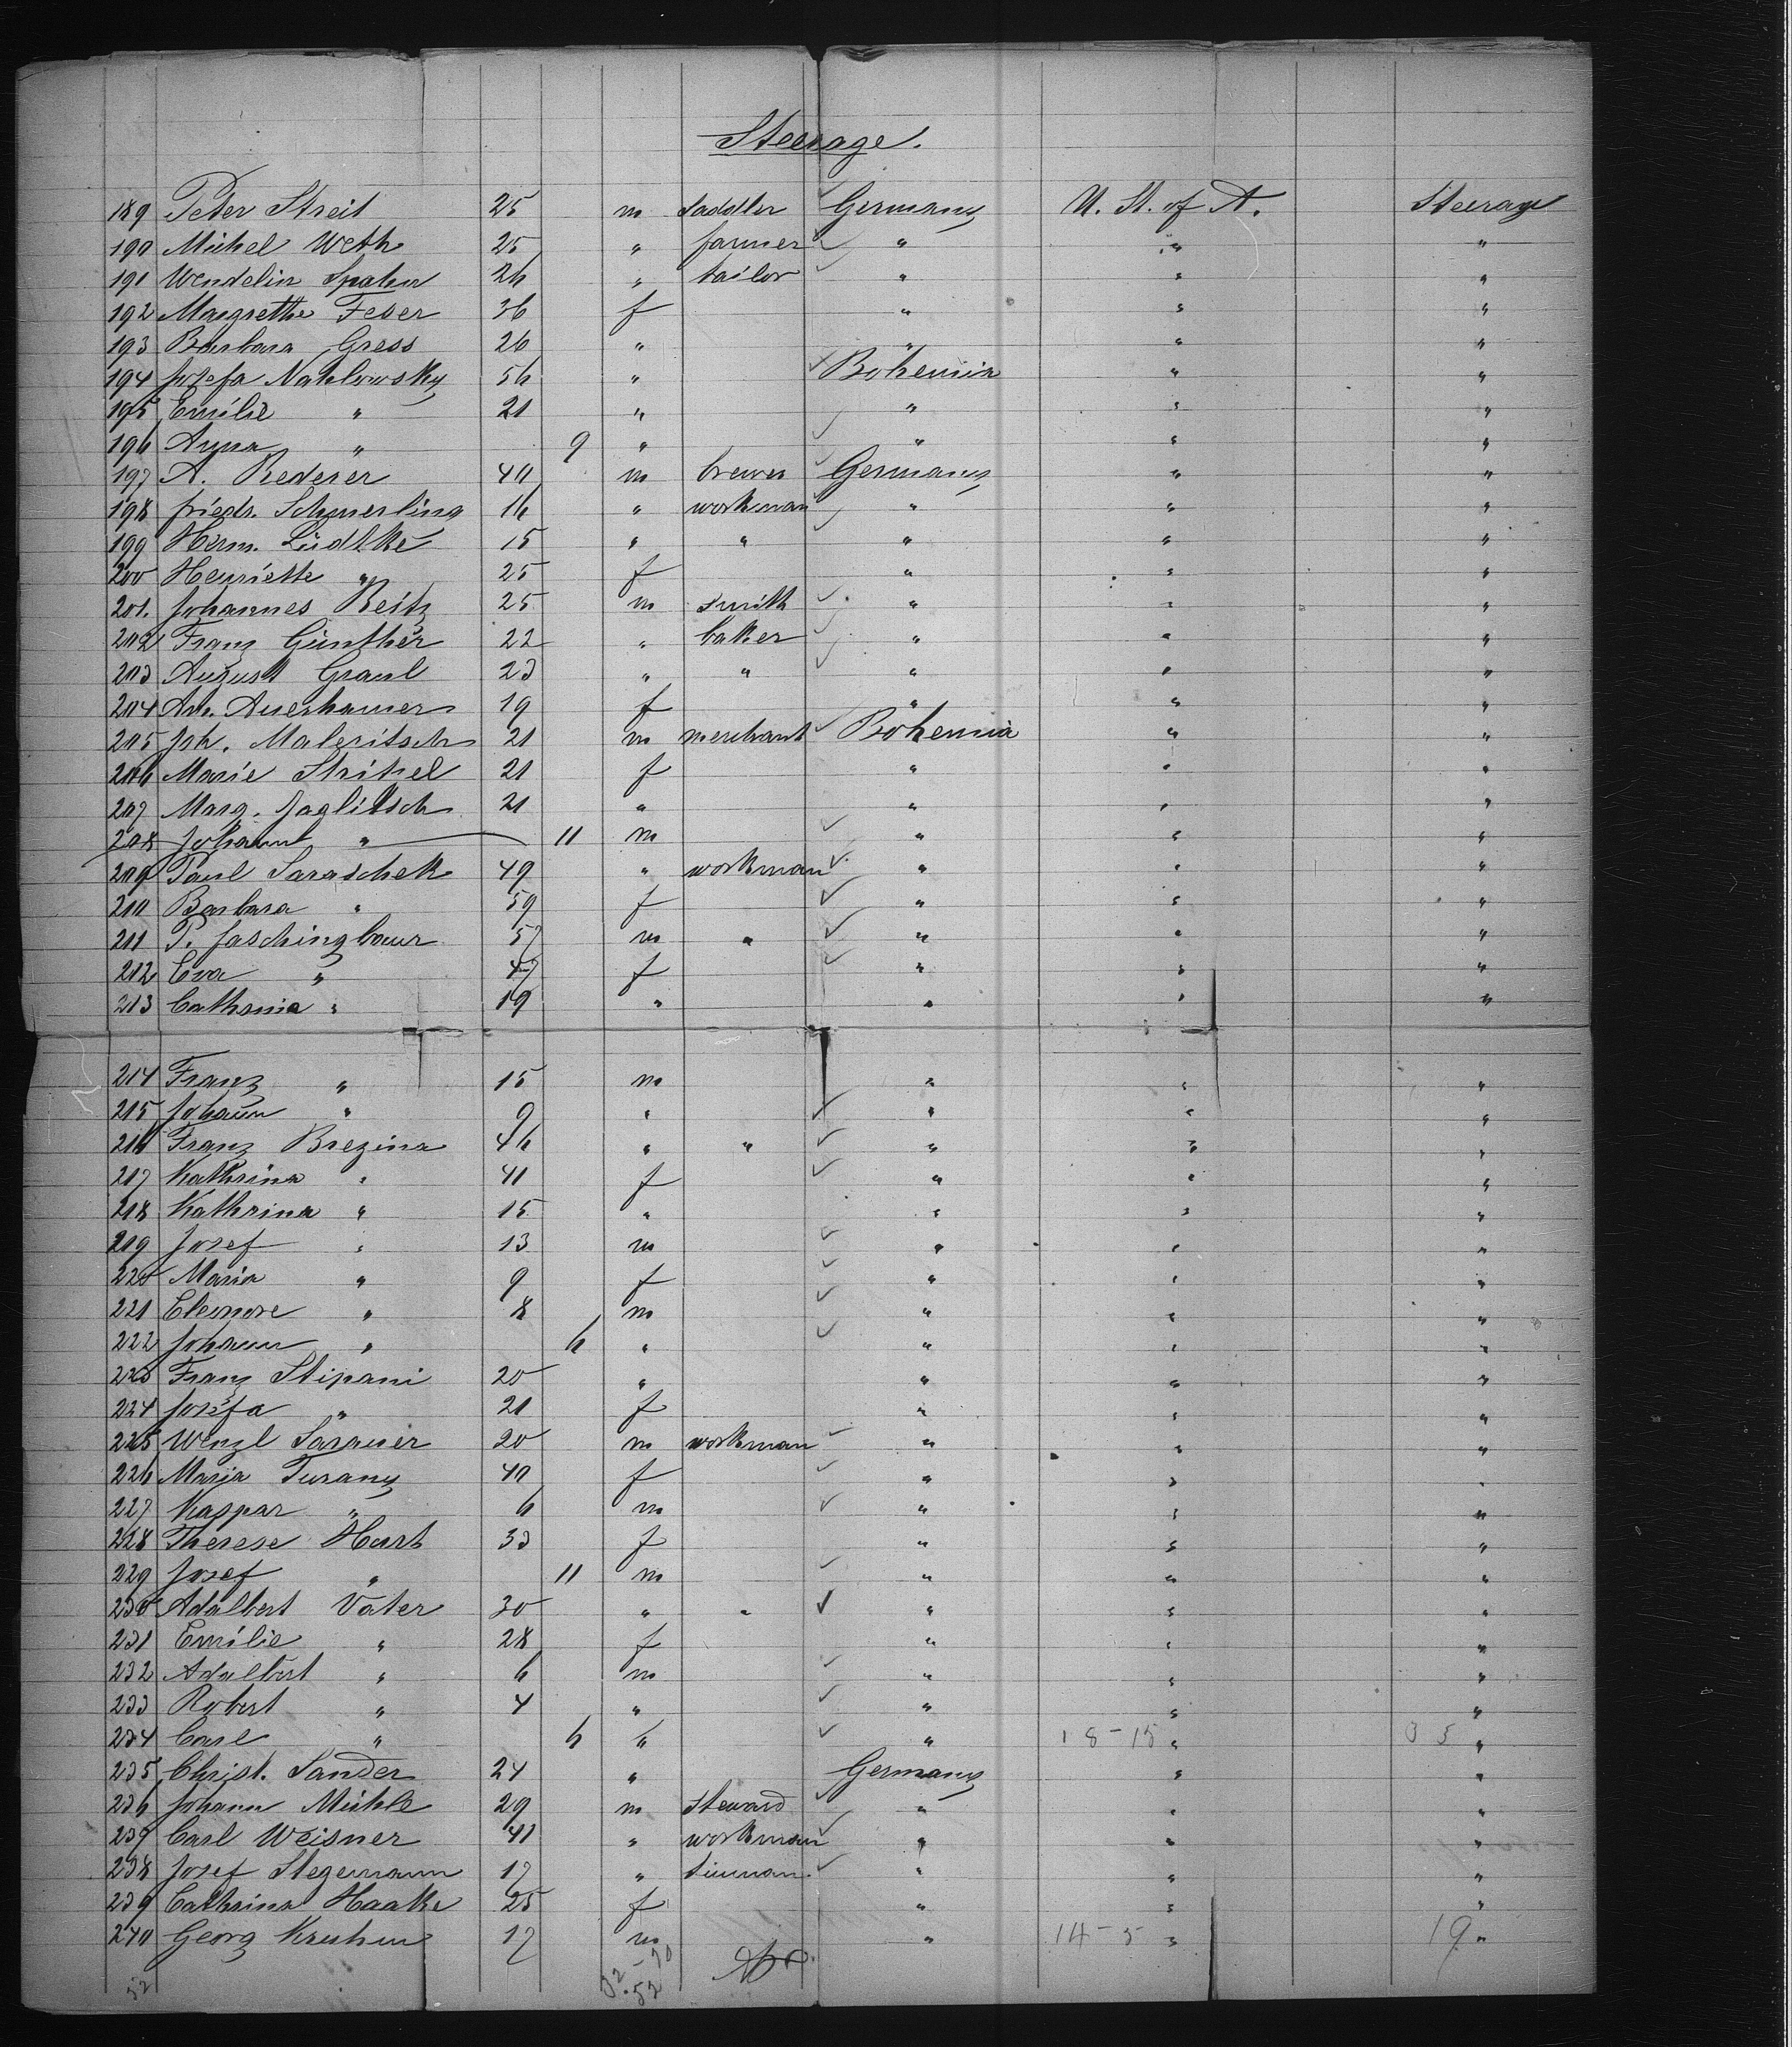 Steerage.
189 Peter Streit 25 m saddler Germany U. St. of A. Steerage
190 Michel Weth 25 " farmer " " "
191 Wendelin Spahn 26 " tailor " " "
192 Margrethe Feser 36 f " " "
193 Barbara Gress 26 " " " "
194 Josefa Nahlowsky 56 " Bohemia " "
195 Emilie " 21 " " " "
196 Anna " 9 " " " "
197 A. Rederer 40 m brewer Germany " "
198 Friedr. Schmerling 16 " workman " " "
199 Herm. Lüdtke 15 " " " " "
200 Henriette " 25 f " " "
201. Johannes Reitz 25 m smith " " "
202 Franz Günther 22 " baker " " "
203 August Graul 23 " " " " "
204 An. Auerhamer 19 f " " "
205 Joh. Maleritsch 21 m merchant Bohemia " "
206 Marie Stritzel 21 f " " "
207 Marg. Jaglitsch 21 " " " "
208 Johann " 11 m " " "
209 Paul Saraschek 49 " workman " " "
210 Barbara " 59 f " " "
211 P. Faschingbaur 57 m " " " "
212 Eva " 47 f " " "
213 Cathrina " 19 " " " "
214 Franz " 15 m " " "
215 Johann " 9 " " " "
216 Franz Brezina 46 " " " " "
217 Kathrina " 41 f " " "
218 Kathrina " 15 " " " "
219 Josef " 13 m " " "
220 Maria " 9 f " " "
221 Eleonore " 8 m " " "
222 Johann " 6 " " " "
223 Franz Stipani 20 " " " "
224 Josefa " 21 f " " "
225 Wenzl Sarauer 20 m workman " " "
226 Maria Turany 40 f " " "
227 Kaspar " 6 m " " "
228 Therese Hart 33 f " " "
229 Josef " 11 m " " "
230 Adalbert Vater 30 " " " " "
231 Emilie " 28 f " " "
232 Adalbert " 6 m " " "
233 Robert " 4 " " " "
234 Carl " 6 " " 18-15 " 33 "
235 Christ. Sander 24 " Germany " "
236 Johann Mühle 29 m steward " " "
237 Carl Weisner 41 " workman " " "
238 Josef Stegemann 17 " tinman. " " "
239 Cathrina Haake 25 f " " "
240 Georg 17 m " 14-5 " 19 "
52 32-20
52